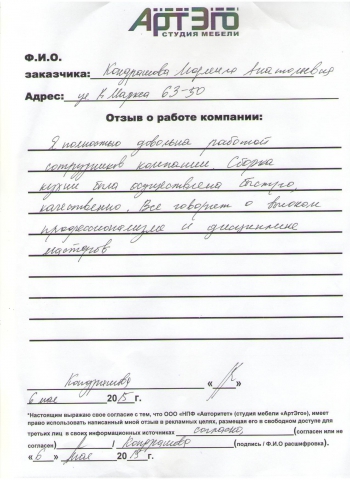 АртЭго
СТУДИЯ МЕБЕЛИ
Ф.И.О.
заказчика: Кондрашова Людмила Анатольевна
Адрес: ул. К. Маркса 63-50
Отзыв о работе компании:
Я полностью довольна работой
сотрудников компании. Сборка
кухни была осуществлена быстро,
качественно. Все говорит о высоком
профессионализме и дисциплине
мастеров
Кондрашова « »
6 мая 2015 г.
*Настоящим выражаю свое согласие с тем, что ООО «НПФ «Авторитет» (студия мебели «АртЭго»), имеет
право использовать написанный мной отзыв в рекламных целях, размещая его в свободном доступе для
третьих лиц в своих информационных источниках согласна (согласен или не
согласен) / Кондрашова (подпись / Ф.И.О расшифровка).
«6» мая 2015 г.